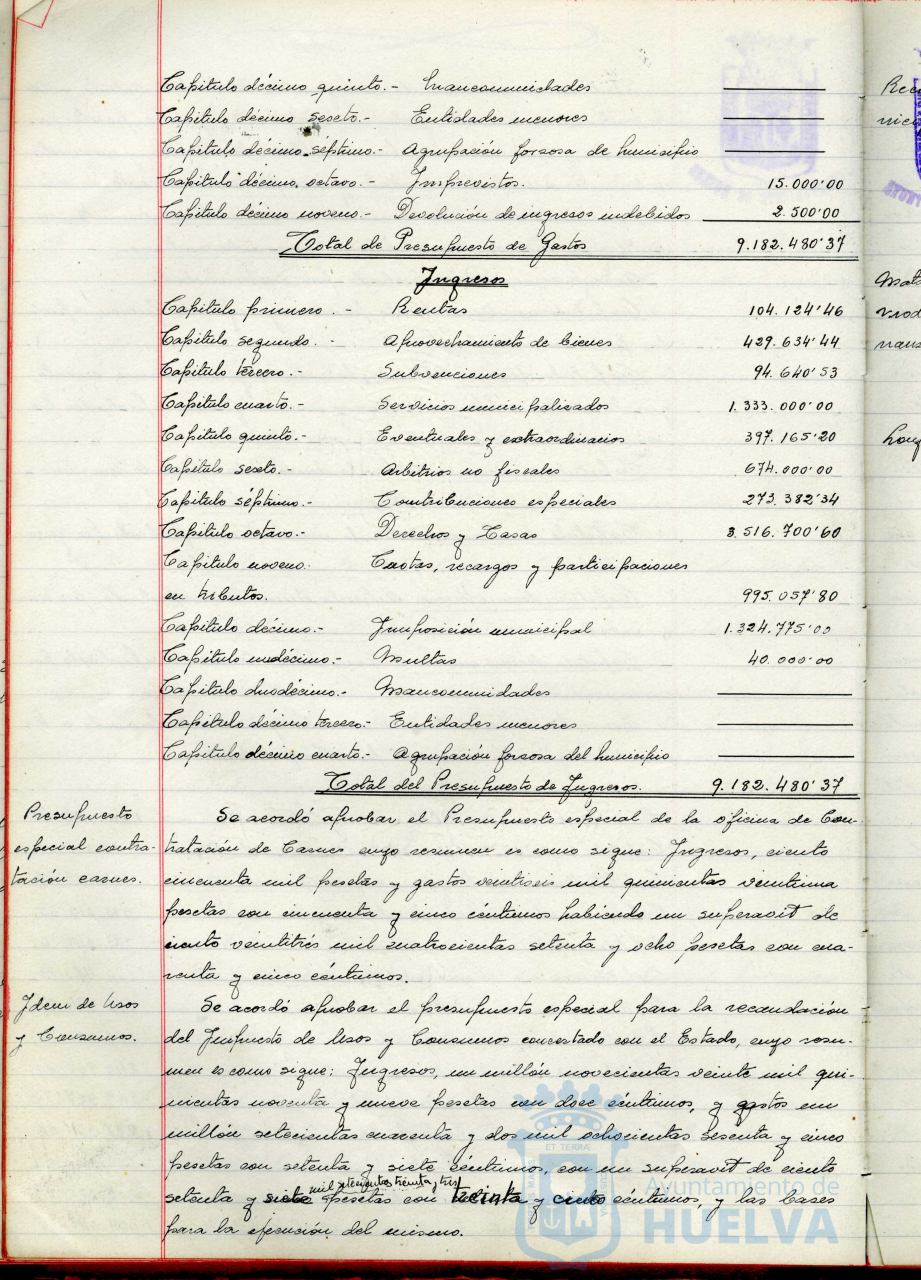 Capítulo décimo quinto.- Mancomunidades
Capítulo décimo sexto.- Entidades menores
Capítulo décimo séptimo.- Agrupación forzosa de Municipio
Capítulo décimo octavo.- Imprevistos. 15.000'00
Capítulo décimo noveno.- Devolución de ingresos indebidos 2.500'00
Total de Presupuesto de Gastos 9.182.480'37
Ingresos
Capítulo primero.- Rentas 104.124'46
Capítulo segundo.- Aprovechamiento de bienes 429.634'44
Capítulo tercero.- Subvenciones 94.640'53
Capítulo cuarto.- Servicios municipalizados 1.333.000'00
Capítulo quinto.- Eventuales y extraordinarios 397.165'20
Capítulo sexto.- Arbitrios no fiscales 674.000'00
Capítulo séptimo.- Contribuciones especiales 273.382'34
Capítulo octavo.- Derechos y Tasas 3.516.700'60
Capítulo noveno. Cuotas, recargos y participaciones
en tributos. 995.057'80
Capítulo décimo.- Imposición municipal 1.324.775'00
Capítulo undécimo.- Multas 40.000'00
Capítulo duodécimo.- Mancomunidades
Capítulo décimo tercero.- Entidades menores
Capítulo décimo cuarto.- Agrupación forzosa del Municipio
Total del Presupuesto de Ingresos. 9.182.480'37
Presupuesto
especial contra-
tación carnes.
Se acordó aprobar el Presupuesto especial de la oficina de Con-
tratación de Carnes cuyo resumen es como sigue: Ingresos, ciento
cincuenta mil pesetas y gastos veintiseis mil quinientas veintiuna
pesetas con cincuenta y cinco céntimos habiendo un superavit de
ciento veintitrés mil cuatrocientas setenta y ocho pesetas con cua-
renta y cinco céntimos.
Idem de Usos
y Consumos.
Se acordó aprobar el presupuesto especial para la recaudación
del Impuesto de Usos y Consumos concertado con el Estado, cuyo resu-
men es como sigue: Ingresos, un millón novecientas veinte mil qui-
nientas noventa y nueve pesetas con doce céntimos, y gastos un
millón setecientas cuarenta y dos mil ochocientas sesenta y cinco
pesetas con setenta y siete céntimos, con un superavit de ciento
mil setecientas treinta y tres
setenta y siete pesetas con treinta y cinco céntimos, y las bases
para la ejecución del mismo.
ET TERRAE
Ayuntamiento de
HUELVA